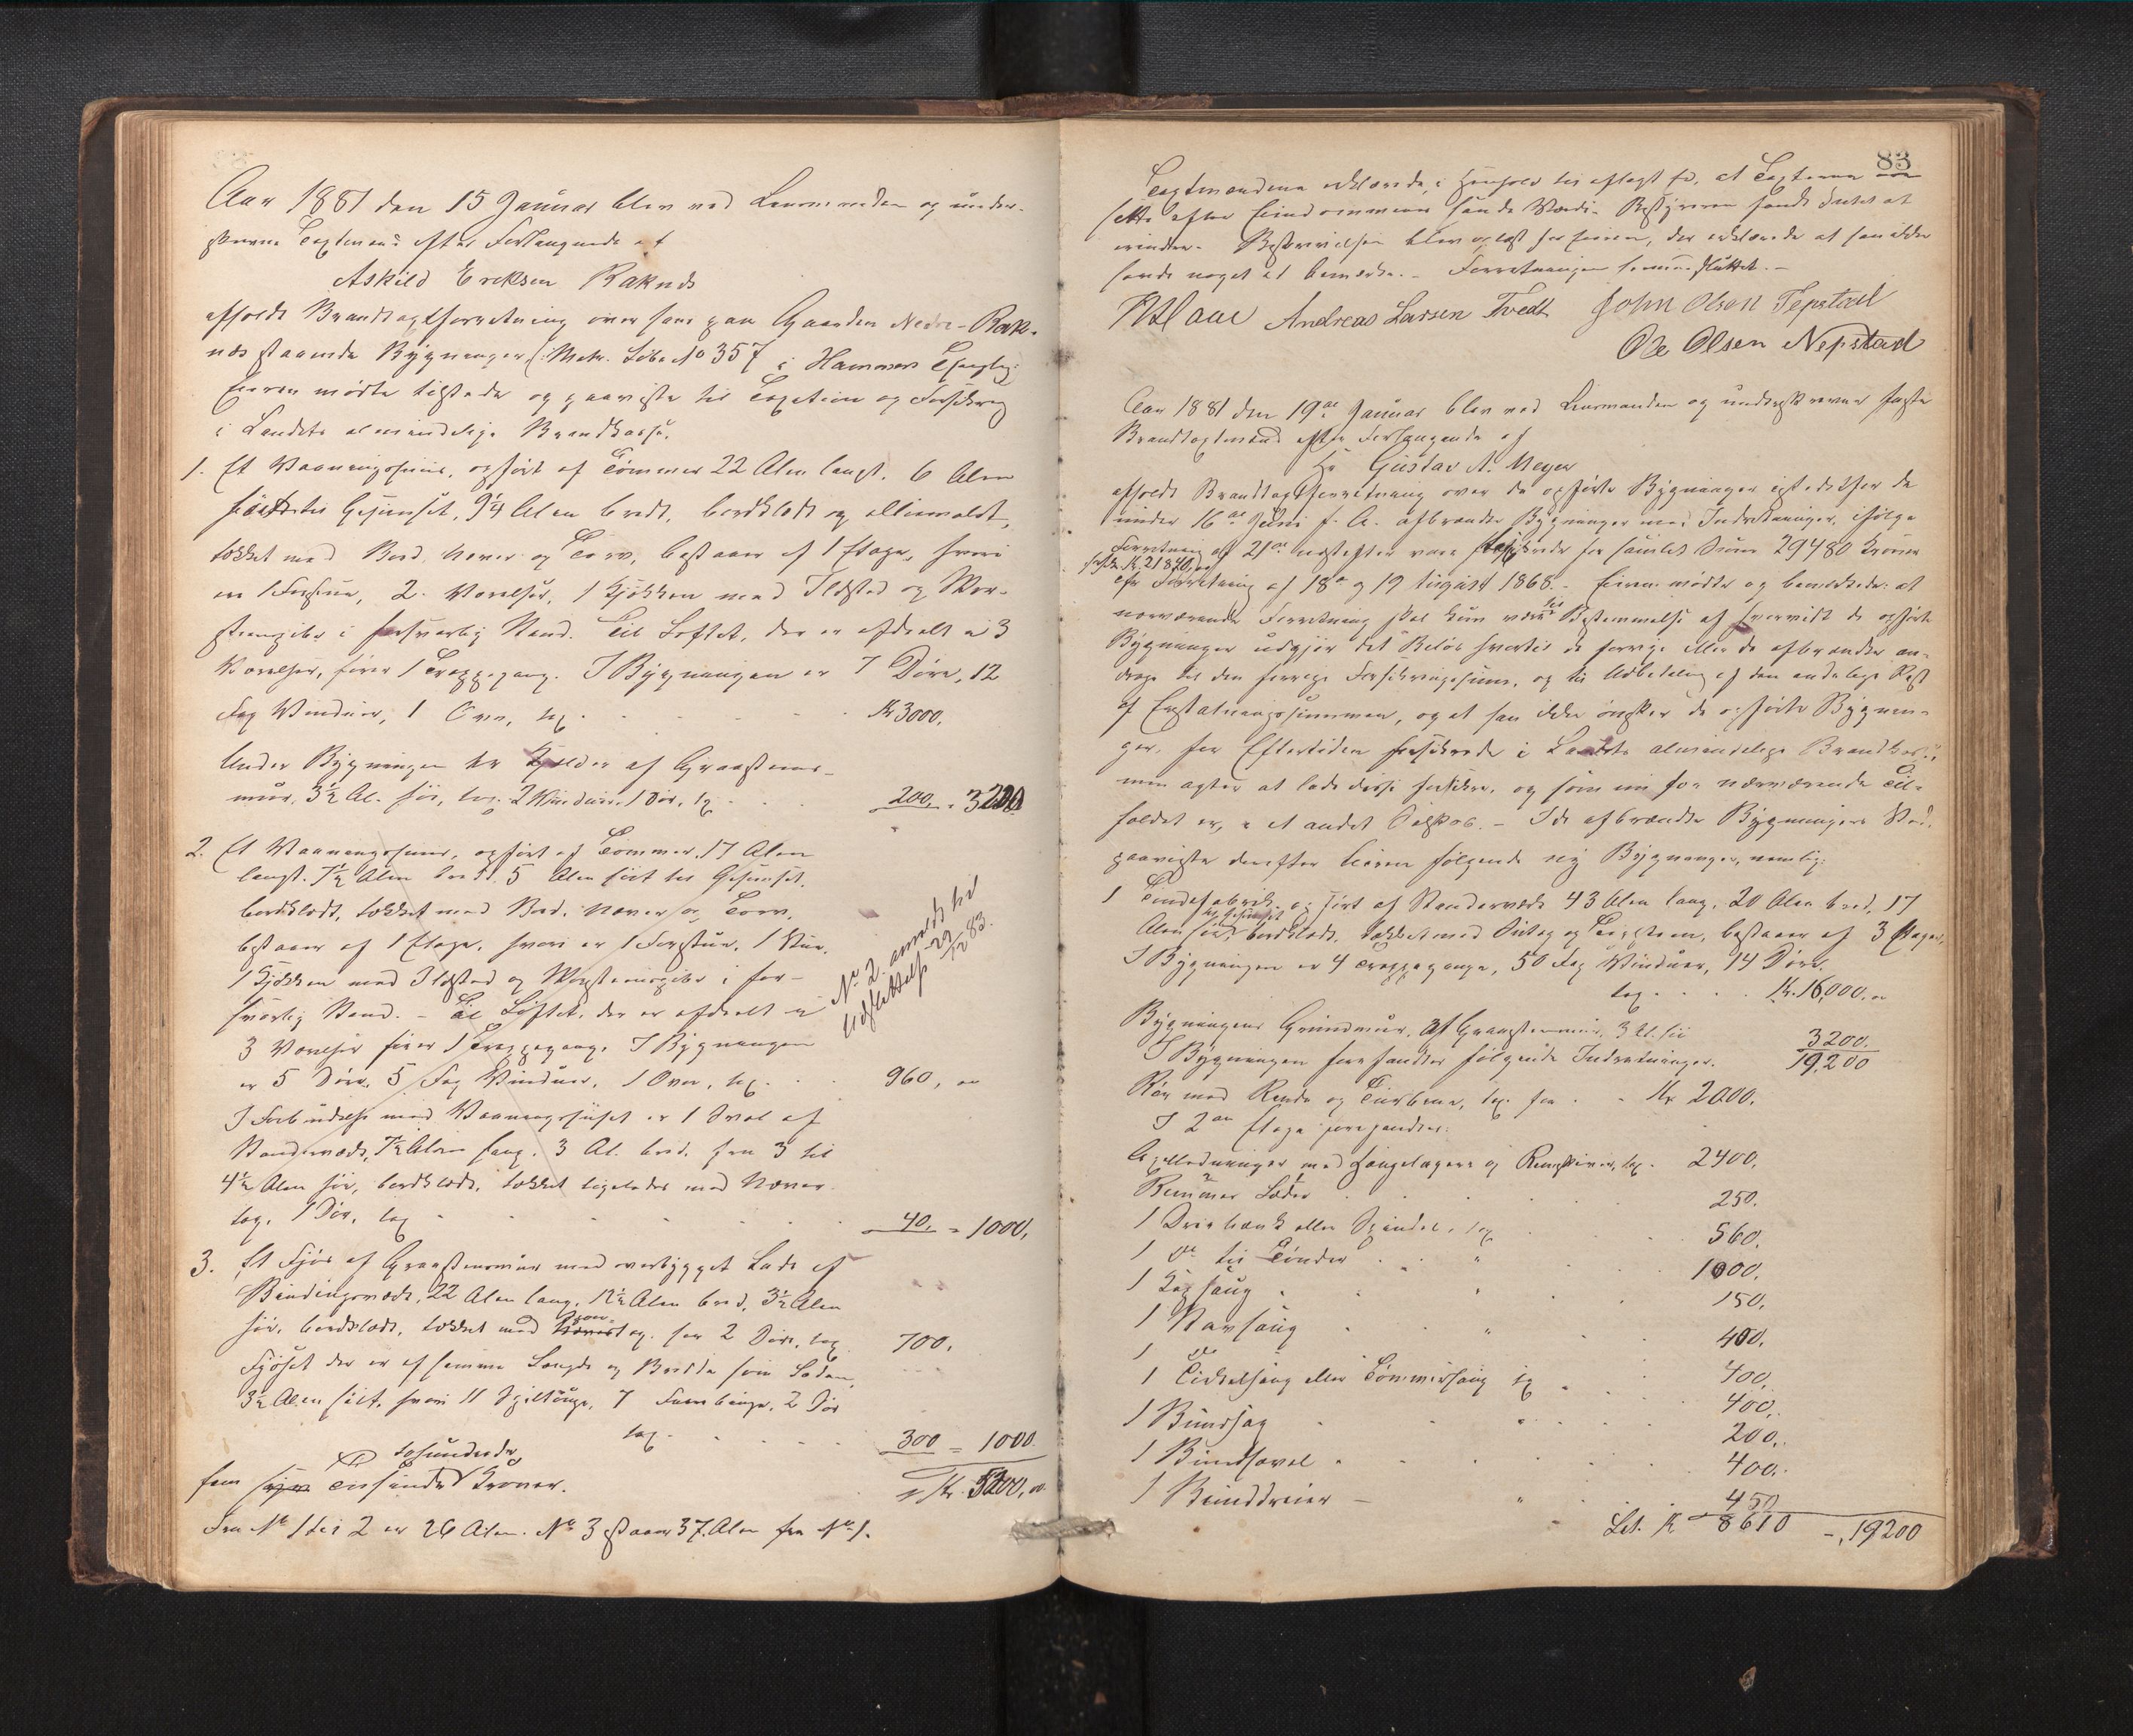 Aar 1881 den 15 Januar blev ved Lensmanden og under-
skrevne Taxtmænd efter Forlangende af
Askild Eriksen Raknes
afholdt Brandtaxtforretning over hans paa Gaarden Nedre-Rak-
nes staaende Bygninger (: Matr. Løbe No 357 i Hammers Thinglag
Eieren mødte tilstede og paaviste til Taxation og Forsikring
i Landets almindelige Brandkasse.
1. Et Vaaningshuus, opført af Tømmer 22 Alen langt, 6 Alen
høit til Gesimset, 9 1/4 Alen bredt, bordklædt og oliemalet,
tækket med Bord, Næver og Torv, bestaar af 1 Etage, hvori
er 1 Forstue, 2 Værelser, 1 Kjøkken med Ildsted og Skor-
stenspibe i forsvarlig Stand. Til Loftet, der er afdeelt i 3
Værelser, fører 1 Trappegang. I Bygningen er 7 Døre, 12
Fag Vinduer, 1 Ovn, tax. Kr 3000.
Under Bygningen er Kjelder af Graasteens-
muur, 3 1/2 Al. høi, 2 Vinduer, 1 Dør, tx 200. = 3200
2. Et Vaaningshuus, opført af Tømmer, 17 Alen
langt, 7 1/2 Alen bredt, 5 Alen høit til Gesimset,
bordklædt, tækket med Bord, Næver og Torv,
bestaar af 1 Etage, hvori er 1 Forstue, 1 Stue,
1 Kjøkken med Ildsted og Skorsteenspibe i for-
svarlig Stand. - Til Loftet, der er afdeelt i
3 Værelser fører 1 Trappegang. I Bygningen
er 5 Døre, 5 Fag Vinduer, 1 Ovn, tax. 960, "
No 2 anmeldt til
Udslettelse 22/12 83.
I Forbindelse med Vaaningshuset er 1 Sval af
Standværk, 7 1/2 Alen lang, 3 Al. bred, fra 3 til
4 1/2 Alen høi, bordklædt, tækket ligeledes med Næver-
tag, 1 Dør, tax 40. = 1000,
3. Et Fjøs af Graasteensmuur med overbygget Lade af
Bindingsværk, 22 Alen lang, 12 1/2 Alen bred, 3 1/2 Alen
høi, bordklædt, tækket med tag. har 2 Døre, tax 700.
Fjøset der er af samme Længde og Bredde som Laden,
3 1/2 Alen høit, hvori 11 7 2 Dør
tax 300 = 1000.
tohundrede
fem Tusinde Kroner. Kr. 5200, "
Fra No 1 til 2 er 26 Alen. No 3 staar 37 Alen fra No 1.
83
Taxtmændene erklærede, i Henhold til aflagt Ed, at Taxterne
satte efter Eiendommens sande Værdi. Bestyreren fandt Intet at
erindre. Beskrivelsen blev oplæst for Eieren, der erklærede at han ikke
havde noget at bemærke. - Forretningen saaledes sluttet. -
Andreas Larsen Tvedt John Olson Tepstad
Ole Olsen Nepstad
Aar 1881 den 19de Januar blev ved Lensmanden og underskrevne faste
Brandtaxtmænd efter Forlangende af
Hr Gustav A. Meyer
afholdt Brandtaxtforretning over de opførte Bygninger istedetfor de
under 16de Juni f. A. afbrændte Bygninger med Indretninger, ifølge
Forretning af 21de næstefter vare for samlet Sum 29480 Kroner
Kr. 21870,
efter Forretning af 18de og 19 August 1868. - Eieren mødte og bemærkede: at
nærværende Forretning skal kun være til Bestemmelse af hvorvidt de opførte
Bygninger udgjør det Beløb hvortil de forrige eller de afbrændte an-
drage til den forrige Forsikringssum, og til Udbetaling af den endelige Rest
af Erstatningssummen, og at han ikke ønsker de opførte Bygnin-
ger, for Eftertiden forsikrede i Landets almindelige Brandkasse,
men agter at lade disse forsikre, og som nu for nærværende Til-
fældet er, i et andet Selskab. - I de afbrændte Bygningers Sted
paaviste derefter Eieren følgende nye Bygninger, nemlig:
1 Tøndefabrik, opført af Standerværk 43 Alen lang, 20 Alen bred, 17
Alen høi til Gesimset, bordklædt, tækket med Sutag og Teglsteen, bestaaer af 3 Etager.
I Bygningen er 4 Trappegange, 50 Fag Vinduer, 14 Døre.
tax Kr. 16,000, "
Bygningens Grundmuur, af Graasteensmuur, 3 Al. høi 3200.
19,200
I Bygningen forefandtes følgende Indretninger.
Rør med Rende og Turbine, tax. for Kr 2000.
I 2den Etage forefandtes:
Axelledninger med Hængelagere og Remskiver, tax. 2400,
Remmer Læder 250.
1 Dreiebænk eller Spindel, tax 560.
1 do til Tønder " 1000.
1 Kapsaug " 150.
1 Stavsaug " 400.
1 do 400,
1 Cirkelsaug eller Tømmersaug tx 400,
1 Bundsag " 200,
1 Bundhøvel " 400.
1 Bunddreier - " 450
Lat. Kr 8610 - 19200